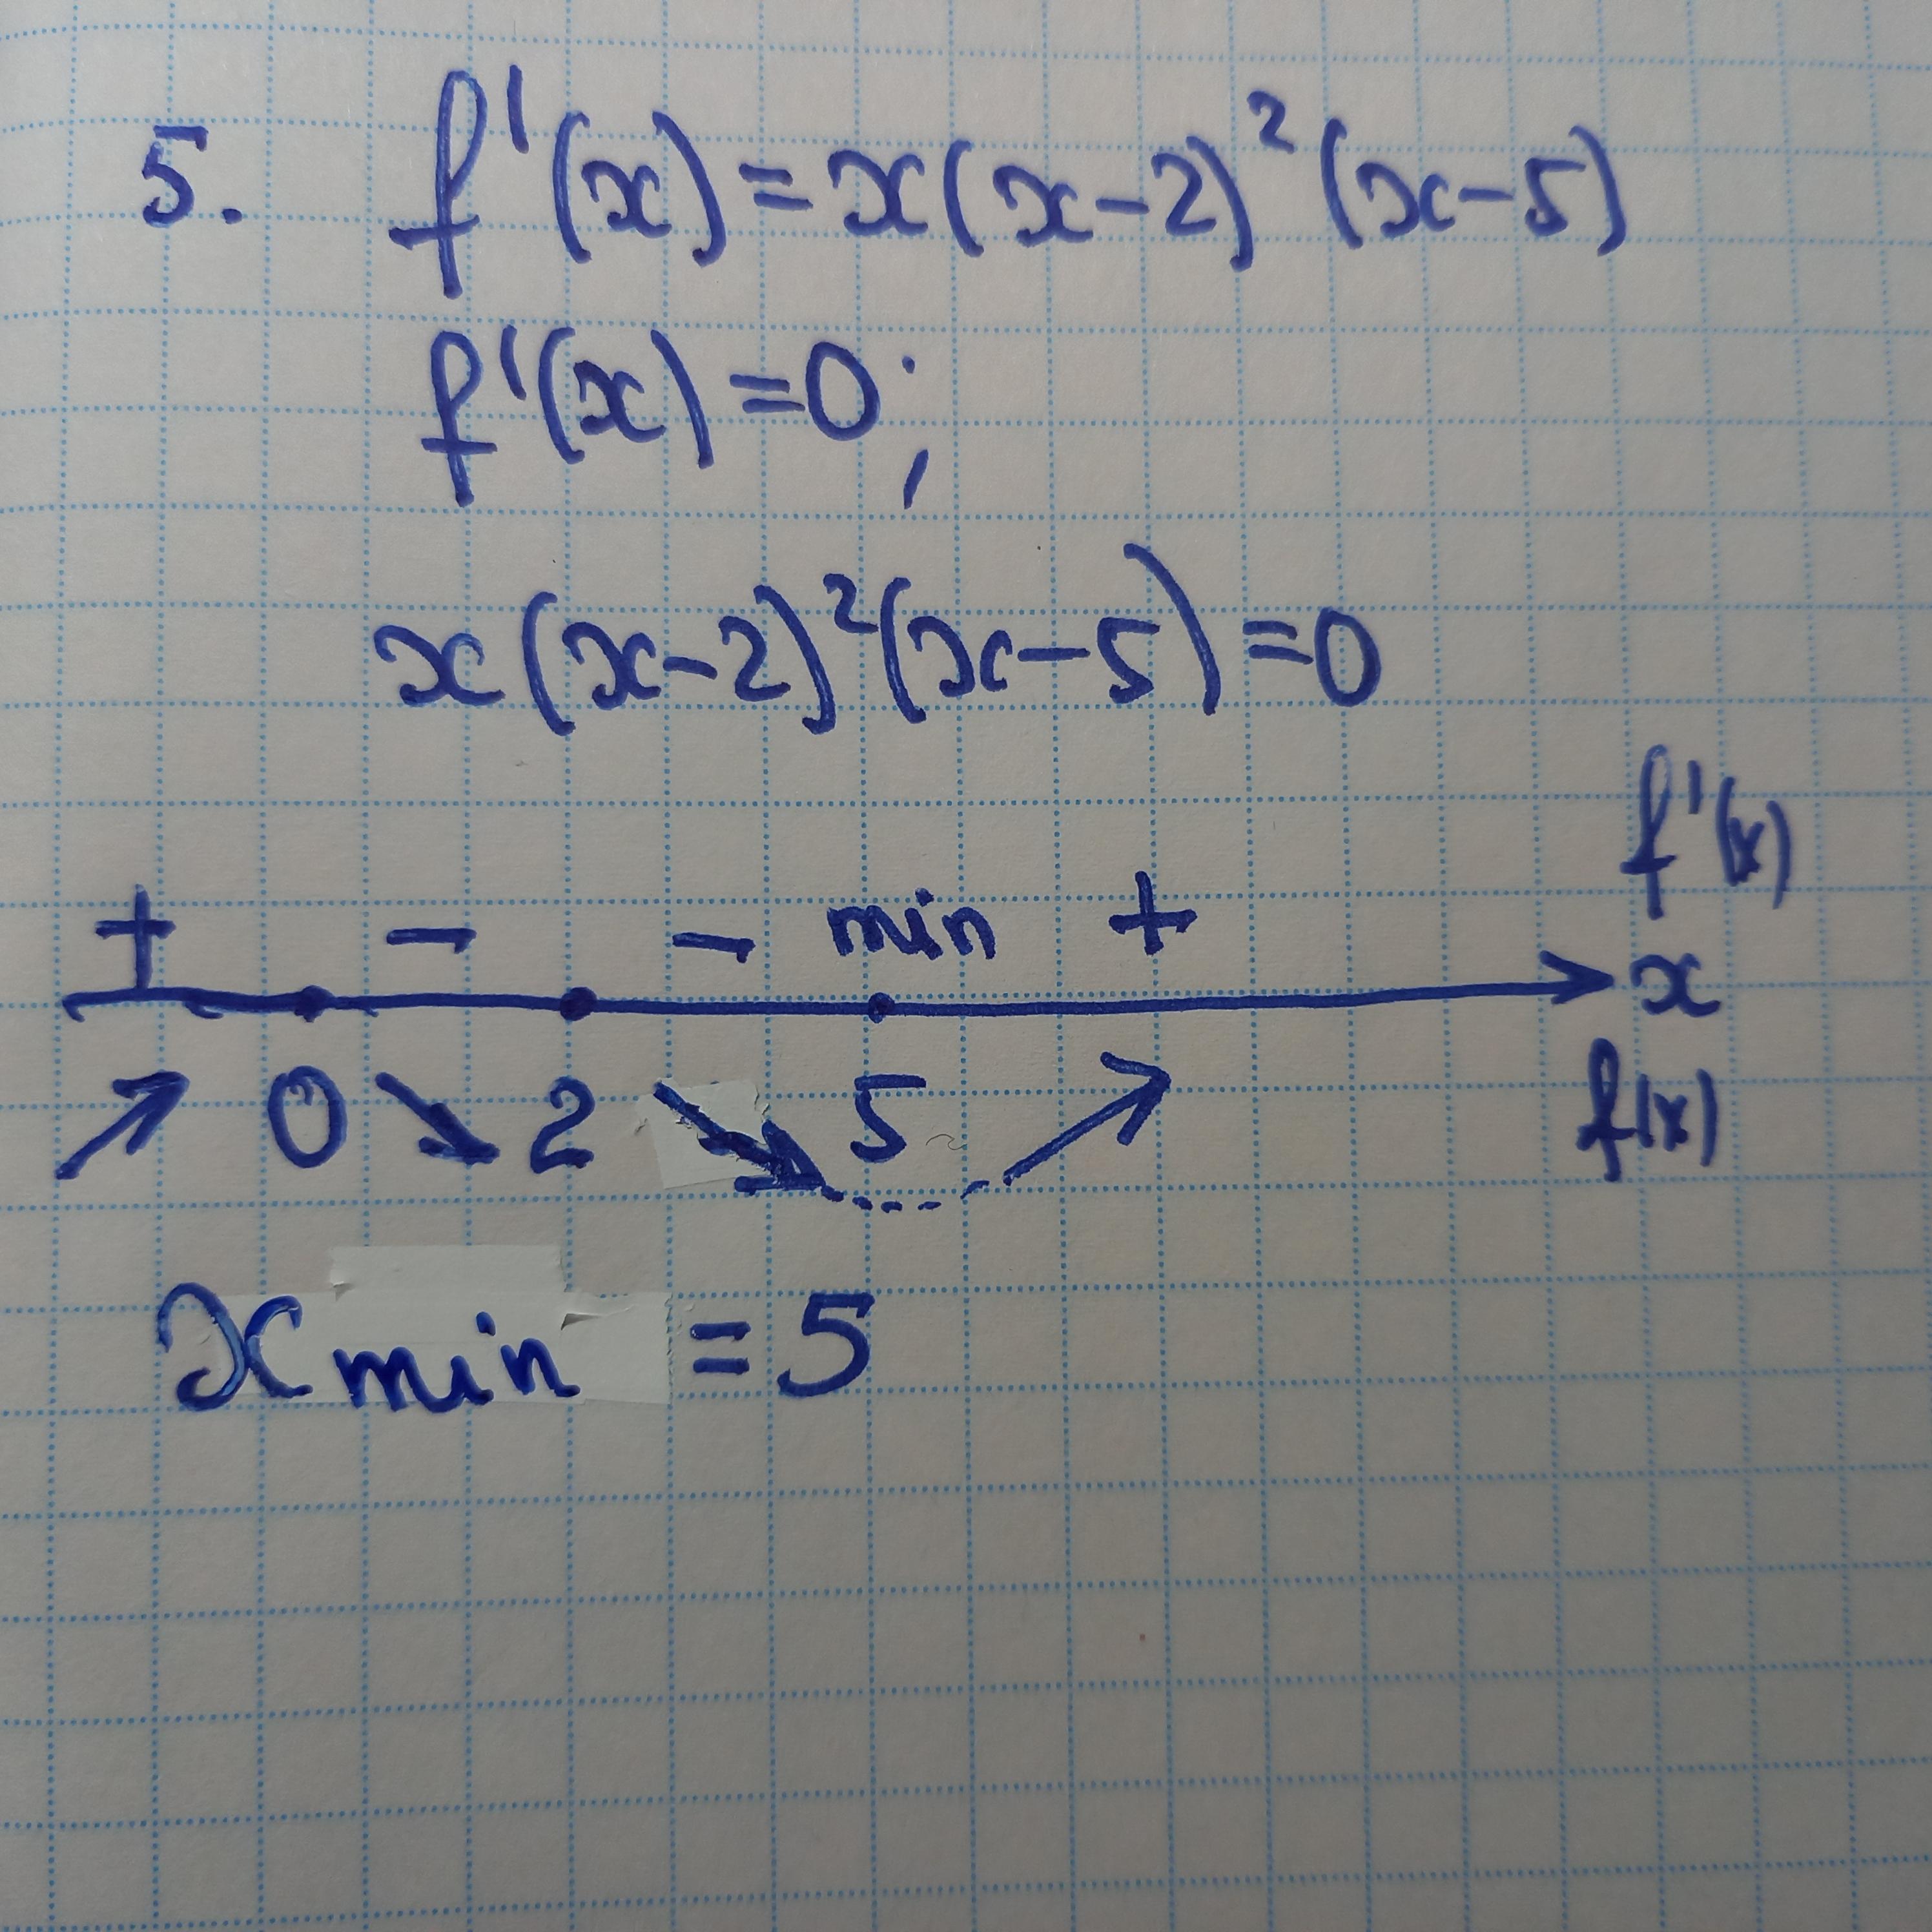 5. f'(x)=x(x-2)²(x-5)
f'(x)=0;
x(x-2)²(x-5)=0
f'(x)
+ - - min +
x
0 2 5 f(x)
x min = 5